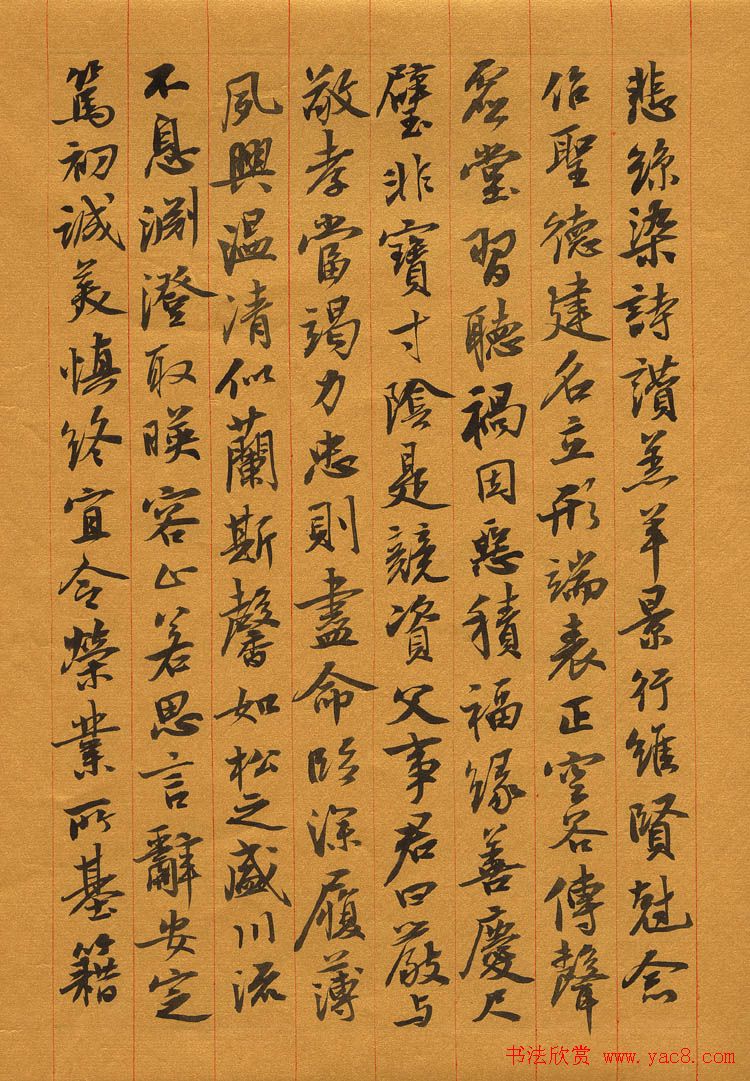 悲絲染詩讚羔羊景行維賢尅念
作聖德建名立形端表正空谷傳聲
虛堂習聽禍因惡積福緣善慶尺
璧非寶寸陰是競資父事君曰嚴与
敬孝當竭力忠則盡命臨深履薄
夙興溫清似蘭斯馨如松之盛川流
不息淵澄取暎容止若思言辭安定
篤初誠美慎終宜令榮業所基籍
书法欣赏 www.yac8.com